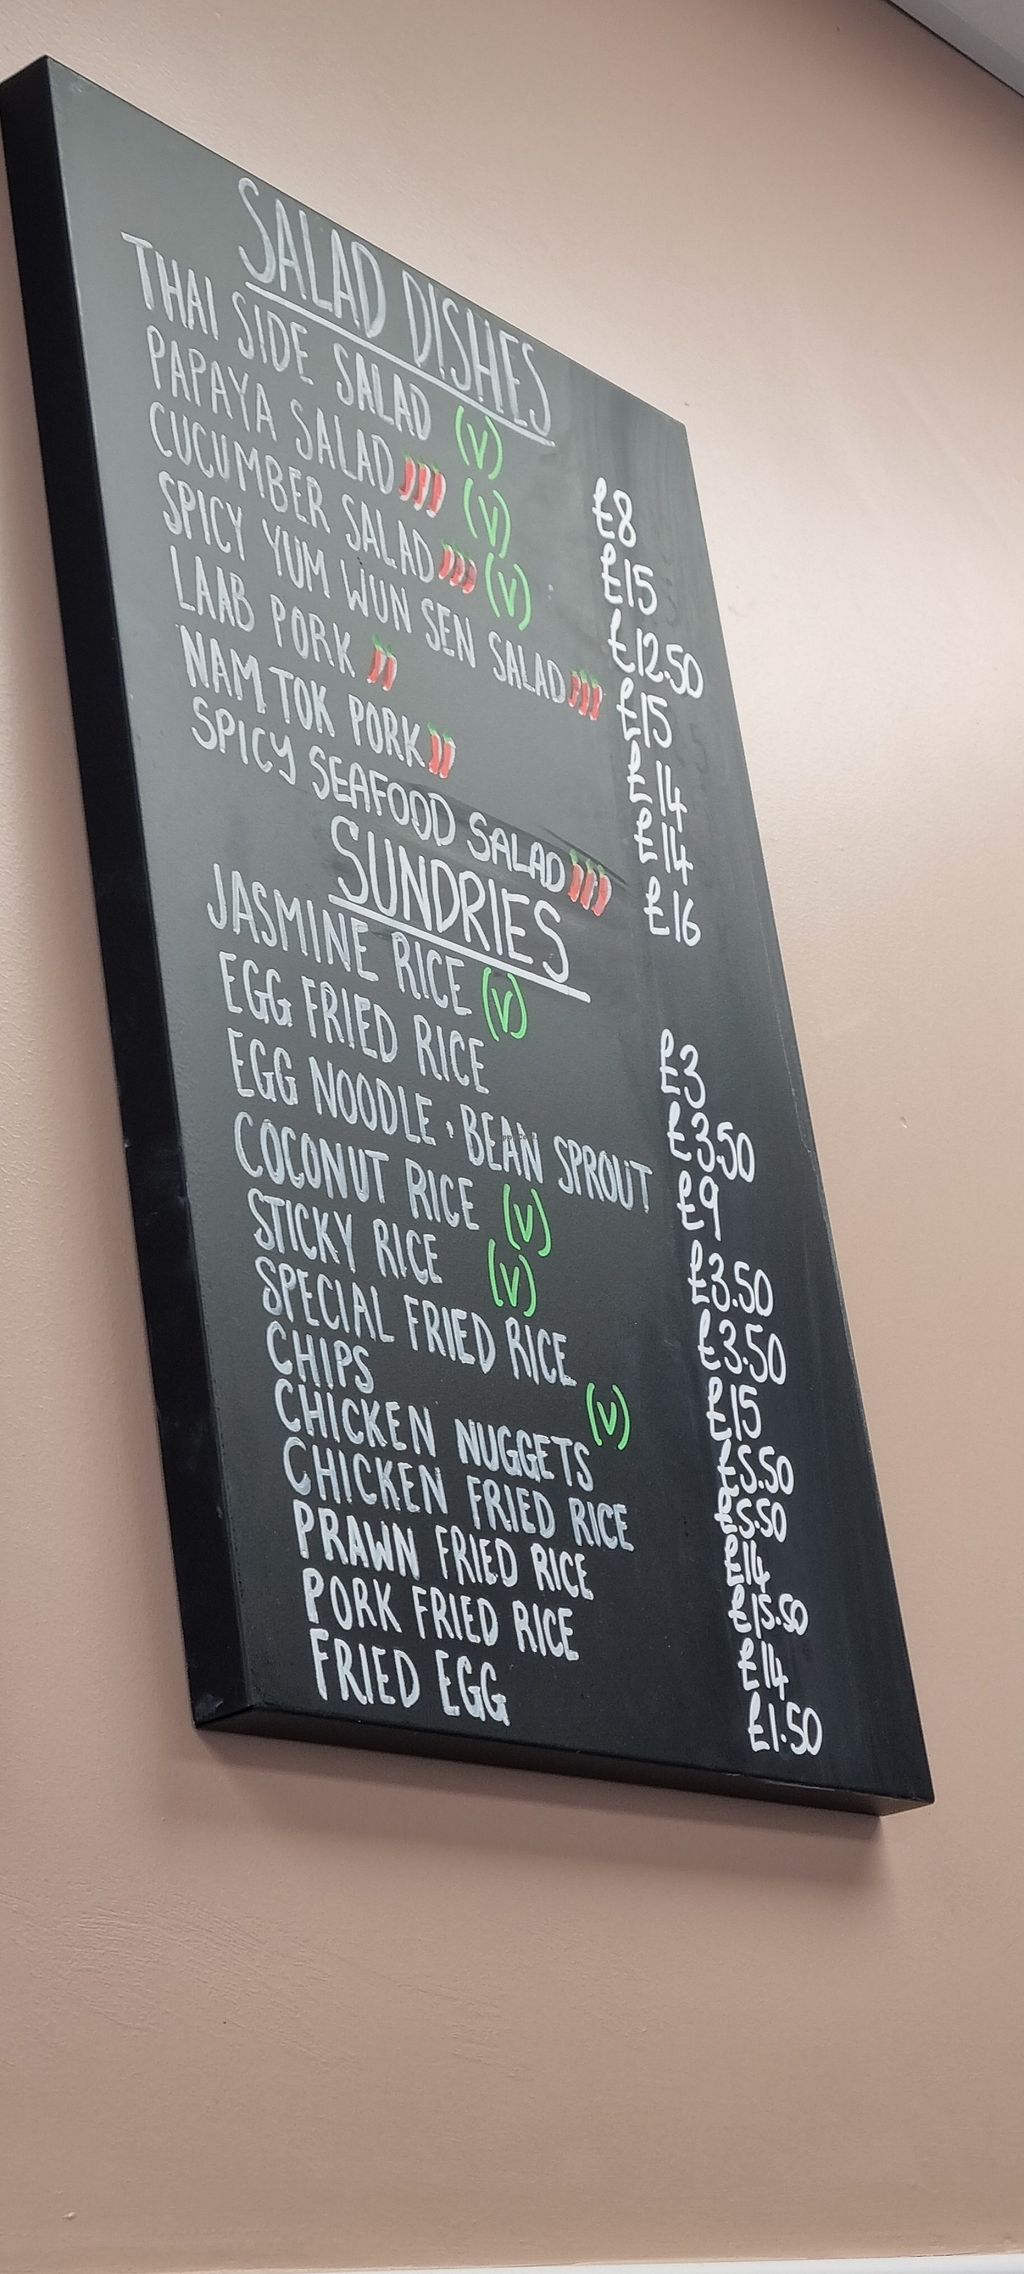 SALAD DISHES
THAI SIDE SALAD (V) £8
PAPAYA SALAD (V) £15
CUCUMBER SALAD (V) £12.50
SPICY YUM WUN SEN SALAD £15
LAAB PORK £14
NAM TOK PORK £14
SPICY SEAFOOD SALAD £16
SUNDRIES
JASMINE RICE (V) £3
EGG FRIED RICE £3.50
EGG NOODLE + BEAN SPROUT £9
COCONUT RICE (V) £3.50
STICKY RICE (V) £3.50
SPECIAL FRIED RICE £15
CHIPS (V) £5.50
CHICKEN NUGGETS £5.50
CHICKEN FRIED RICE £14
PRAWN FRIED RICE £15.50
PORK FRIED RICE £14
FRIED EGG £1.50